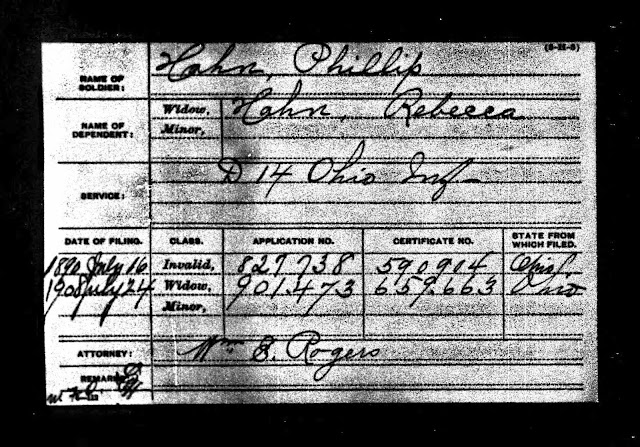 (3-II-3)
NAME OF SOLDIER: Hahn, Phillip
NAME OF DEPENDENT: Widow, Hahn, Rebecca
Minor,
SERVICE: D 14 Ohio Inf
DATE OF FILING. CLASS. APPLICATION NO. CERTIFICATE NO. STATE FROM WHICH FILED.
1890 July 16 Invalid, 827.738 590904
1908 July 24 Widow, 901.473 659.663 Ohio
Minor,
ATTORNEY: Wm E. Rogers
REMARKS: